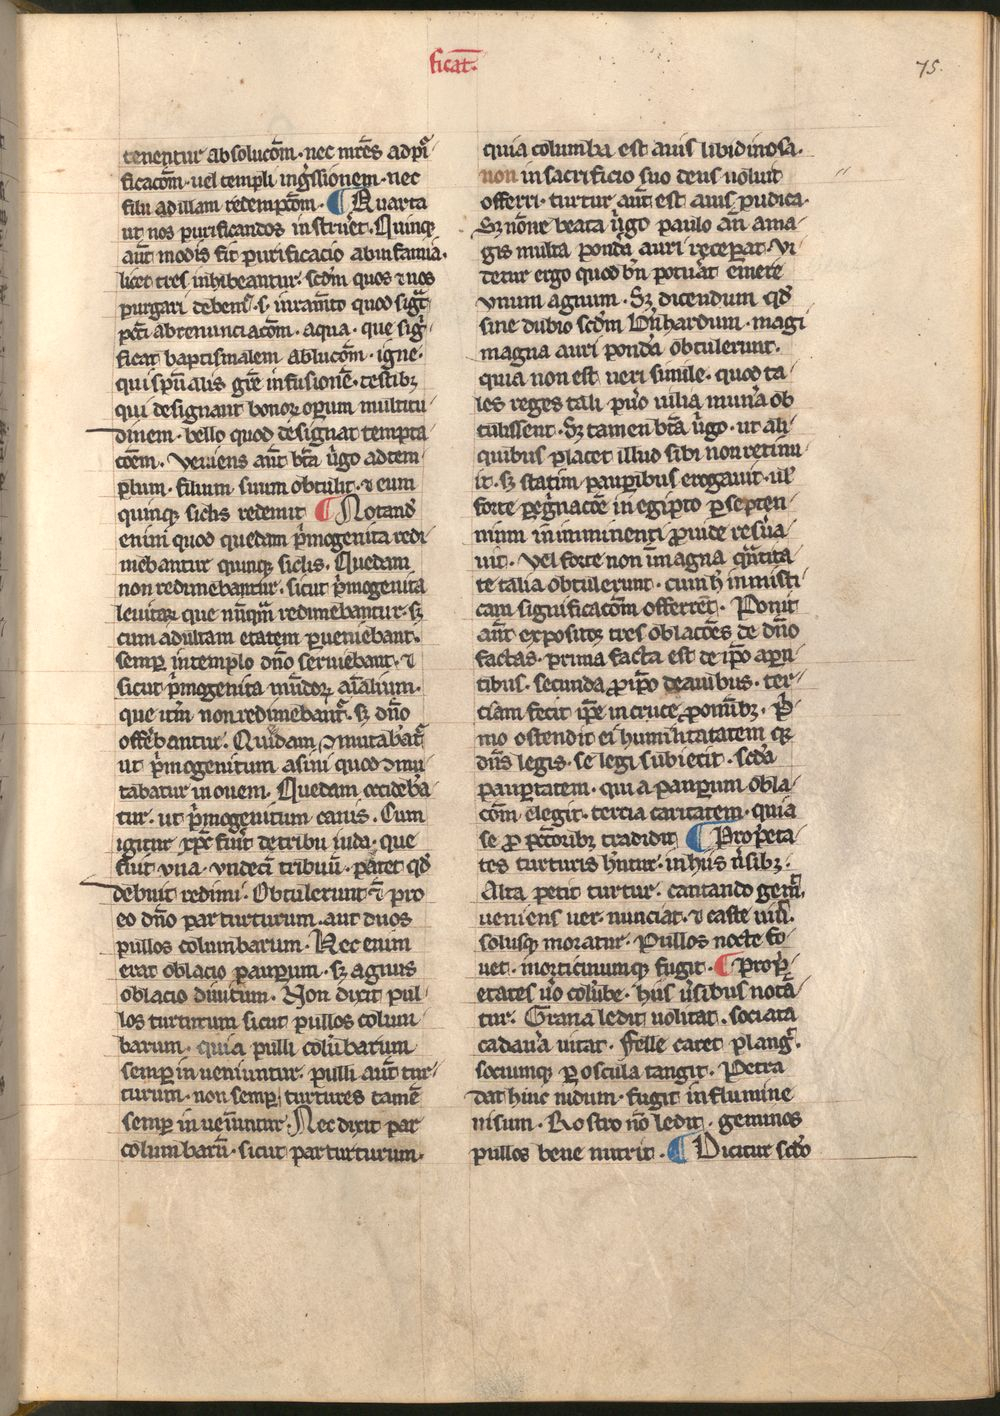 ficat̄.
75.
tenentur absoluco̅m · nec mr̄es ad pͥ
ficaco̅m · uel templi ingͬssionem · nec
filii ad illam redempco̅m · ¶ Quarta
ut nos purificandos instru̓et · Quinqꝫ
aut̄ modis fit purificacio ab infamia ·
licet tres inhibeantur · scd̄m quos ⁊ nos
purgari debemꝰ · s · iuram̄to quod sigͣt
pcc̄i abrenunciaco̅m · aqua · que sigͥ
ficat baptismalem abluco̅m · igne ·
qui spūalis gr̄e infusionē · testibꝫ
qui designant bonoꝝ oꝑum multitu
dinem · bello quod designat tempta
co̅em · Veniens aut̄ bt̄a uͥgo ad tem
plum · filium suum obtulit · ⁊ eum
quinqꝫ siclis redemit ¶ Notand̓
enim quod quedam pͥmogenita redi
mebantur quinqꝫ siclis · Quedam
non redimebantur · sicut pͥmogenita
leuitaꝝ que nūqͣm redimebantur · sꝫ
cum adultam etatem ꝑueniebant ·
semꝑ in templo dn̄o seruiebant · ⁊
sicut pͥmogenita mūdoꝝ aīalium ·
que itm̄ non redimebant᷑ · sꝫ dn̄o
offe̓bantur · Quidam ꝯmutabāt᷑
ut pͥmogenitum asini quod ꝯmu
tabatur in ouem · Quedam occideba
tur · ut pͥmogenitum canis · Cum
igitur xp̄c fuit̓ de tribu iuda · que
fuit una · undeci̅ tribuū · patet qd̓
debuit redimi · Obtulerunt ⁊ pro
eo dn̄o par turturum · aut duos
pullos columbarum · Hec enim
erat oblacio pauꝑum · sꝫ agnus
oblacio diuitum · Non dixit pul
los turturum sicut pullos colum
barum · quia pulli colūbarum
semꝑ inueniuntur · pulli aut̄ tur
turum · non semꝑ turtures tamē
semꝑ inueīuntur · Nec dixit par
columbarū · sicut par turturum ·
quia columba est auis libidinosa ·
non in sacrificio suo deus uoluit
offerri · turtur aut̄ est auis pudica ·
Sꝫ nōne beata uͥgo paulo an̄ a ma
gis multa pond̓a auri recep̓at · Vi
detur ergo quod bn̄ potu̓at em̄ere
unum agnum · Sꝫ dicendum qd̓
sine dubio scd̄m Bn̓hardum · magi
magna auri pond̓a obtulerunt ·
quia non est ueri simile · quod ta
les reges tali pu̓o uilia mun̓a ob
tulissent · Sꝫ tamen bt̄a uͥgo · ut ali
quibus placet illud sibi non retinu
it · sꝫ statim pauꝑibus erogauit · ul̓
forte ꝑegͥnaco̅e in egipto ꝑ septen
nium in imminenti ꝓuide resu̓a
uit · Vel forte non in magna qͣntita
te talia obtulerunt · cum h̓ in misti
cam significaco̅m offerrēt · Ponit
aut̄ expositoꝝ tres oblacōes de dn̄o
factas · prima facta est de ip̄o a paren
tibus · secunda ꝓ ip̄o de auibus · ter
ciam fecit ip̄e in cruce ꝓ omībꝫ · Pͥ
mo ostendit ei humilitatatem qꝛ
dn̄s legis · se legi subiecit · scd̓a
pauꝑtatem · qui a pauꝑum obla
co̅m elegit · tercia caritatem · quia
se ꝓ pcc̄toribꝫ tradidit ¶ Prop̓eta
tes turturis hn̄tur · in hiis uͥsibꝫ ·
Alta petit turtur · cantando gem̄ ·
ueniens uer nunciat · ⁊ caste uiu̓ ·
solusqꝫ moratur · Pullos nocte fo
uet · morticinumqꝫ fugit · ¶ Prop̓
etates uͦo colūbe · hiis uͥsibus notā
tur · Grana ledit uolitat · sociata
cadau̓a uitat · Felle caret plang̓ ·
sociumqꝫ ꝑ oscula tangit · Petra
dat hinc nidum · fugit in flumine
nisum · Rostro nō ledit · geminos
pullos bene nutrit · ¶ Dicitur scd̓o